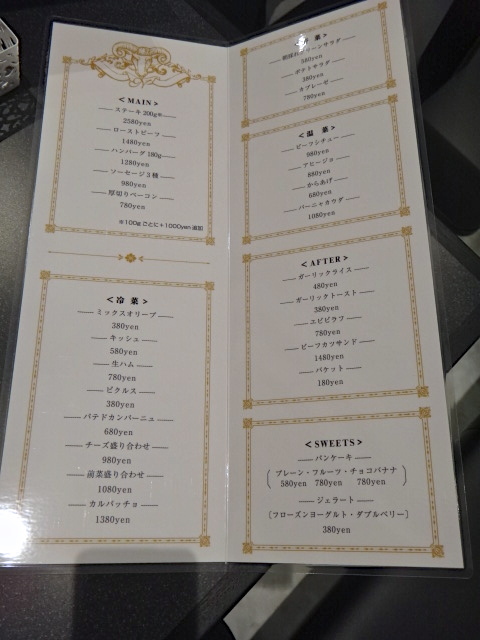 ＜MAIN＞
ステーキ 200g※
2580yen
ローストビーフ
1480yen
ハンバーグ 180g
1280yen
ソーセージ３種
980yen
厚切りベーコン
780yen
※100gごとに＋1000yen 追加
＜冷 菜＞
ミックスオリーブ
380yen
キッシュ
580yen
生ハム
780yen
ピクルス
380yen
パテドカンパーニュ
680yen
チーズ盛り合わせ
980yen
前菜盛り合わせ
1080yen
カルパッチョ
1380yen
菜＞
グリーンサラダ
580yen
ポテトサラダ
380yen
カプレーゼ
780yen
＜温 菜＞
ビーフシチュー
980yen
アヒージョ
880yen
からあげ
680yen
バーニャカウダ
1080yen
＜AFTER＞
ガーリックライス
480yen
ガーリックトースト
380yen
エビピラフ
780yen
ビーフカツサンド
1480yen
バケット
180yen
＜SWEETS＞
パンケーキ
プレーン・フルーツ・チョコバナナ
580yen 780yen 780yen
ジェラート
〔フローズンヨーグルト・ダブルベリー〕
380yen